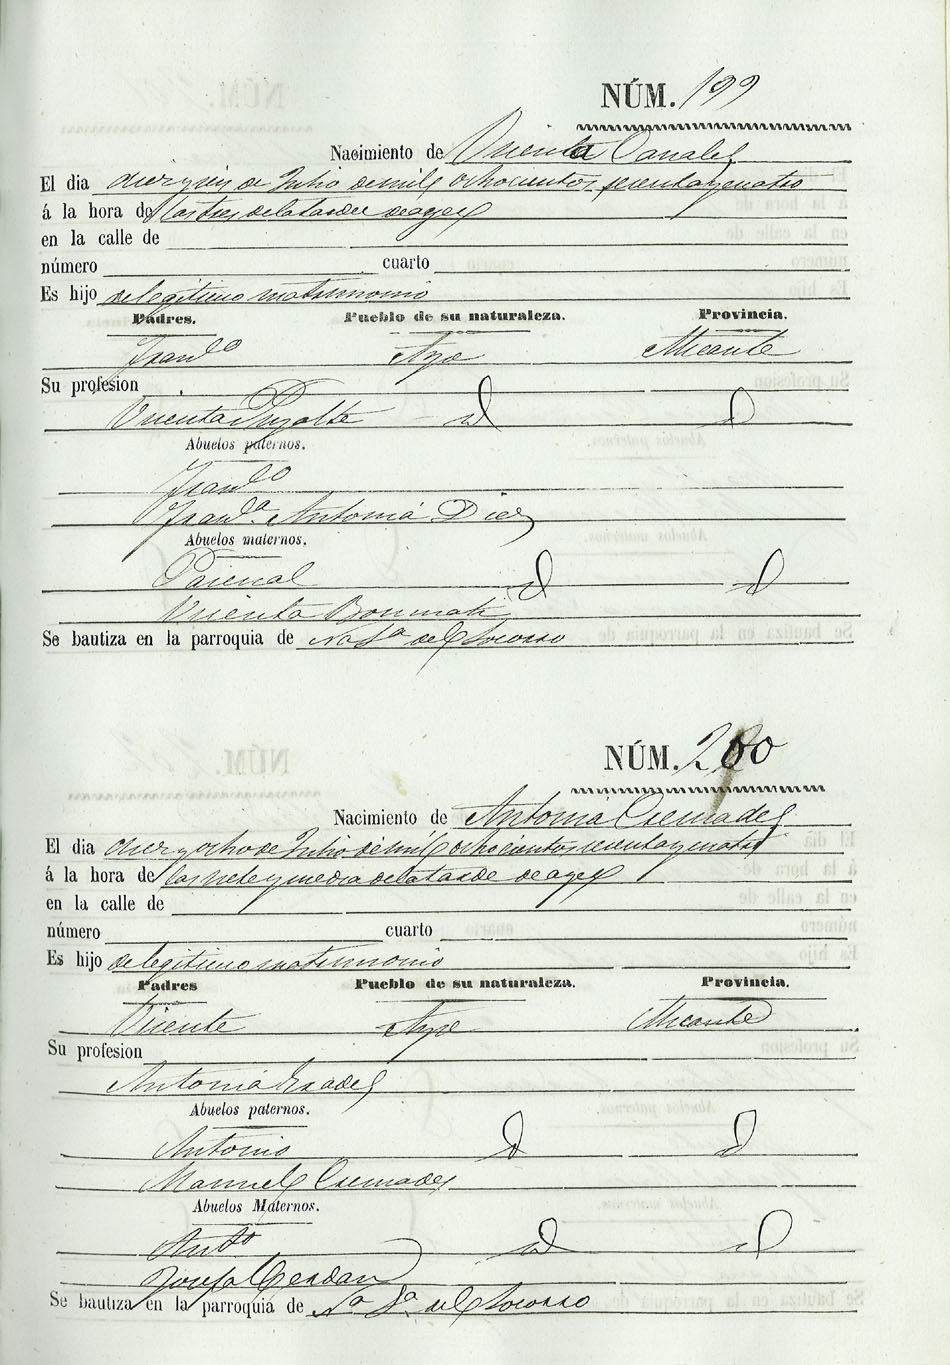 NÚM. 199
Nacimiento de Vicenta Canales
El dia diez y seis de Julio de mil ochocientos sesenta y cuatro
á la hora de las tres de la tarde de ayer
en la calle de
número cuarto
Es hijo de legitimo matrimonio
Padres. Pueblo de su naturaleza. Provincia.
Fran.co Aspe Alicante
Su profesion
Vicenta id id
Abuelos paternos.
Fran.co
Fran.ca Antonia Diez
Abuelos maternos.
Pascual id id
Vicenta Bonmati
Se bautiza en la parroquia de Na Sa del Socorro
NÚM. 200
Nacimiento de Antonia Cremades
El dia diez y ocho de Julio de mil ochocientos sesenta y cuatro
á la hora de las siete y media de la tarde de ayer
en la calle de
número cuarto
Es hijo de legitimo matrimonio
Padres Pueblo de su naturaleza. Provincia.
Vicente Aspe Alicante
Su profesion
Antonia
Abuelos paternos.
Antonio id id
Manuela Cremades
Abuelos Maternos.
Anto id id
Josefa Cerdan
Se bautiza en la parroquia de Na Sa del Socorro